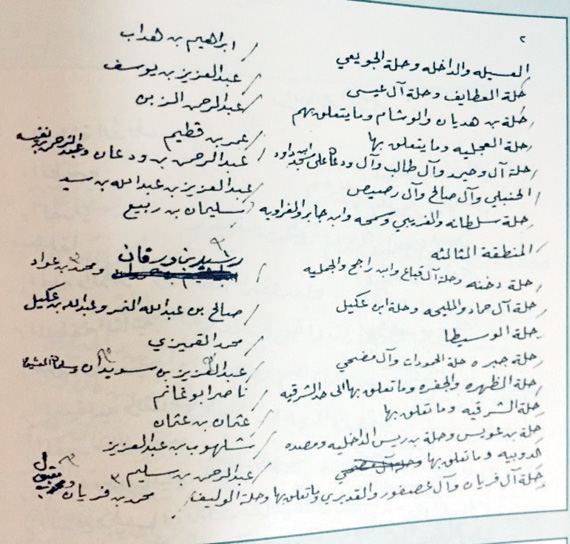 ٢
العسيله والداخله وحلة الجويعي / ابراهيم بن هداب
حلة العطايف وحلة آل عيسى / عبدالعزيز بن يوسف
حلة بن هديان والوشام ومايتعلق بهم / عبدالرحمن الزبن
حلة العجليه وما يتعلق بها / عمر بن قطيم
حلة آل وحيمد وآل طالب وآل ودعان على مسجد ابن داود / عبدالرحمن بن ودعان وعبدالرحمن بن نفيسه
الحنبلي وآل صالح وآل رصيص / عبدالعزيز بن عبدالله بن سيد
حلة سلطانه والغريبي وسمحه وابن جابر والغراويه / سليمان بن ربيع
المنطقة الثالثه
حلة دخنه وحلة آل قباع وابن راجح والجمليه / رشيد بن ورقان ومحمد بن عواد
حلة آل حماد والمليحه وحلة ابن عكيل / صالح بن عبدالله النمر وعبدالله بن عكيل
حلة الوسيطا / محمد القميزي
حلة جبره حلة الحمودات وآل مضحي / عبدالعزيز بن سويدان
حلة الظهره والجفره وما تعلق بها الى حد الشرقيه / ناصر ابو غانم
حلة الشرقيه وما تعلق بها / عثمان بن عثمان
حلة بن عويس وحلة بن ريس الداخليه ومصده / شلهوب بن عبدالعزيز
حدوبيه وما تعلق بها / عبدالرحمن بن سليم ٣
حلة آل فريان وآل عصفور والقديري وما تعلق بها وحلة الوليف / محمد بن فريان